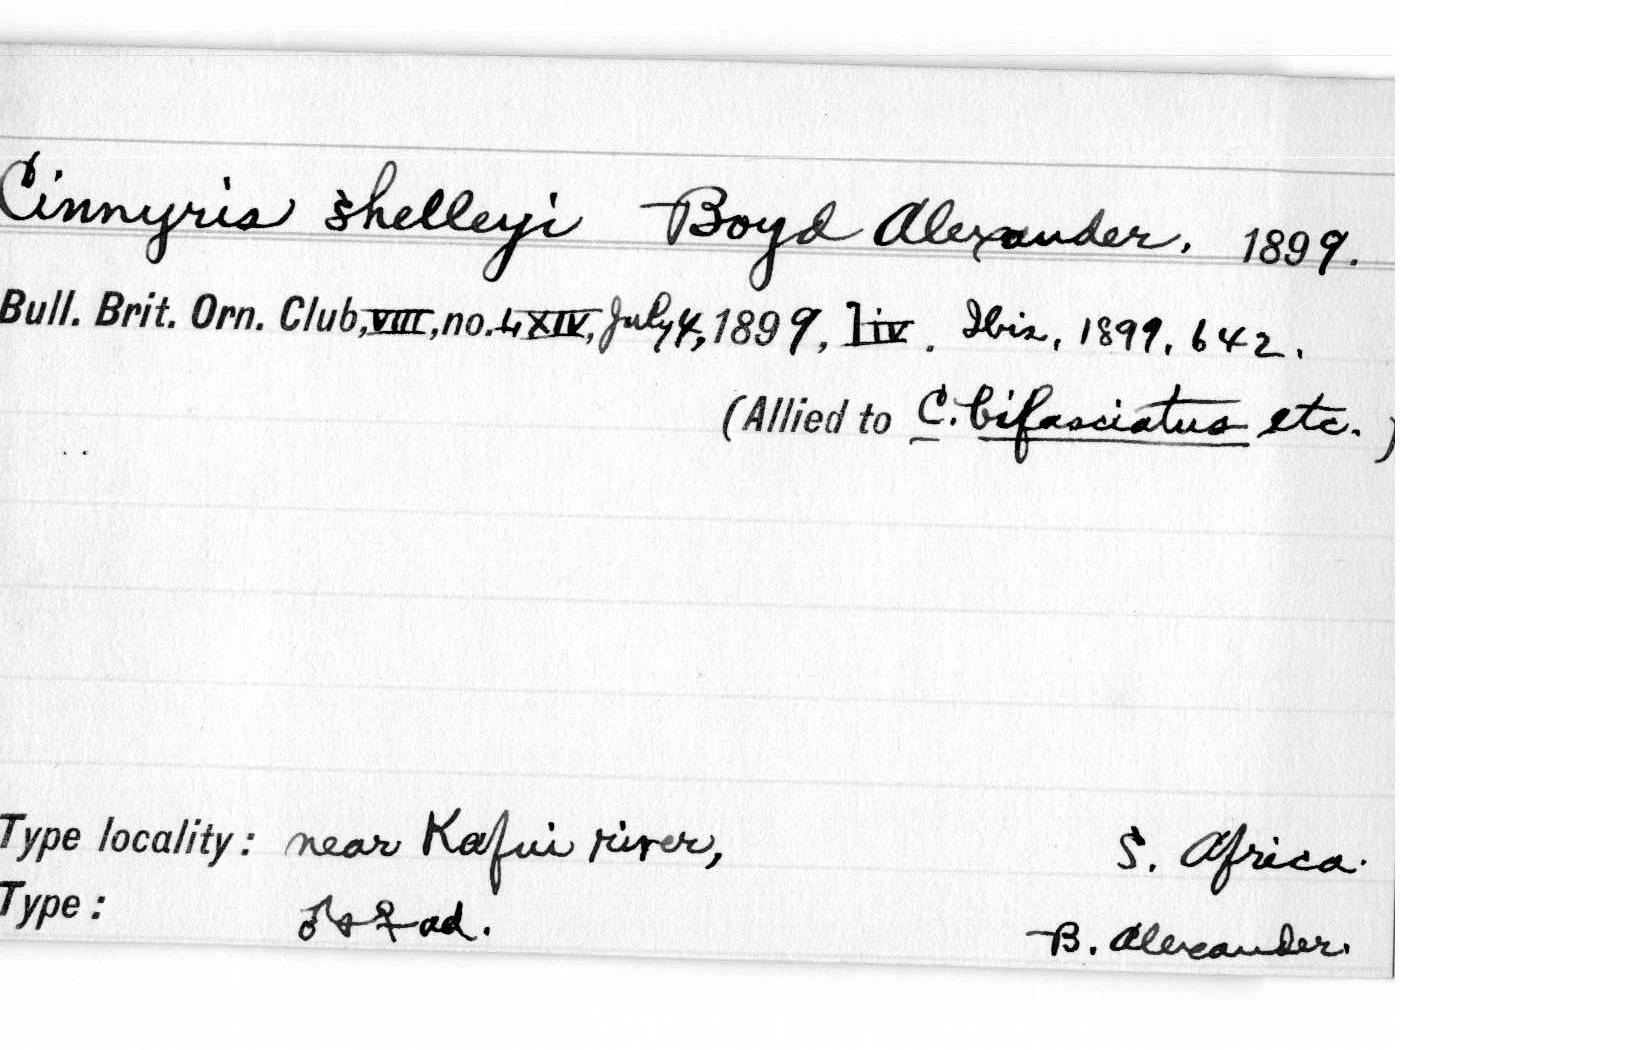 Cinnyris shelleyi Boyd Alexander. 1899.
Bull. Brit. Orn. Club, VIII, no. LXIV, July 4, 1899, liv. Ibis, 1899, 642.
(Allied to C. bifasciatus etc. )
Type locality: near Kafui river, S. Africa.
Type: ♂ & ♀ ad. B. Alexander.